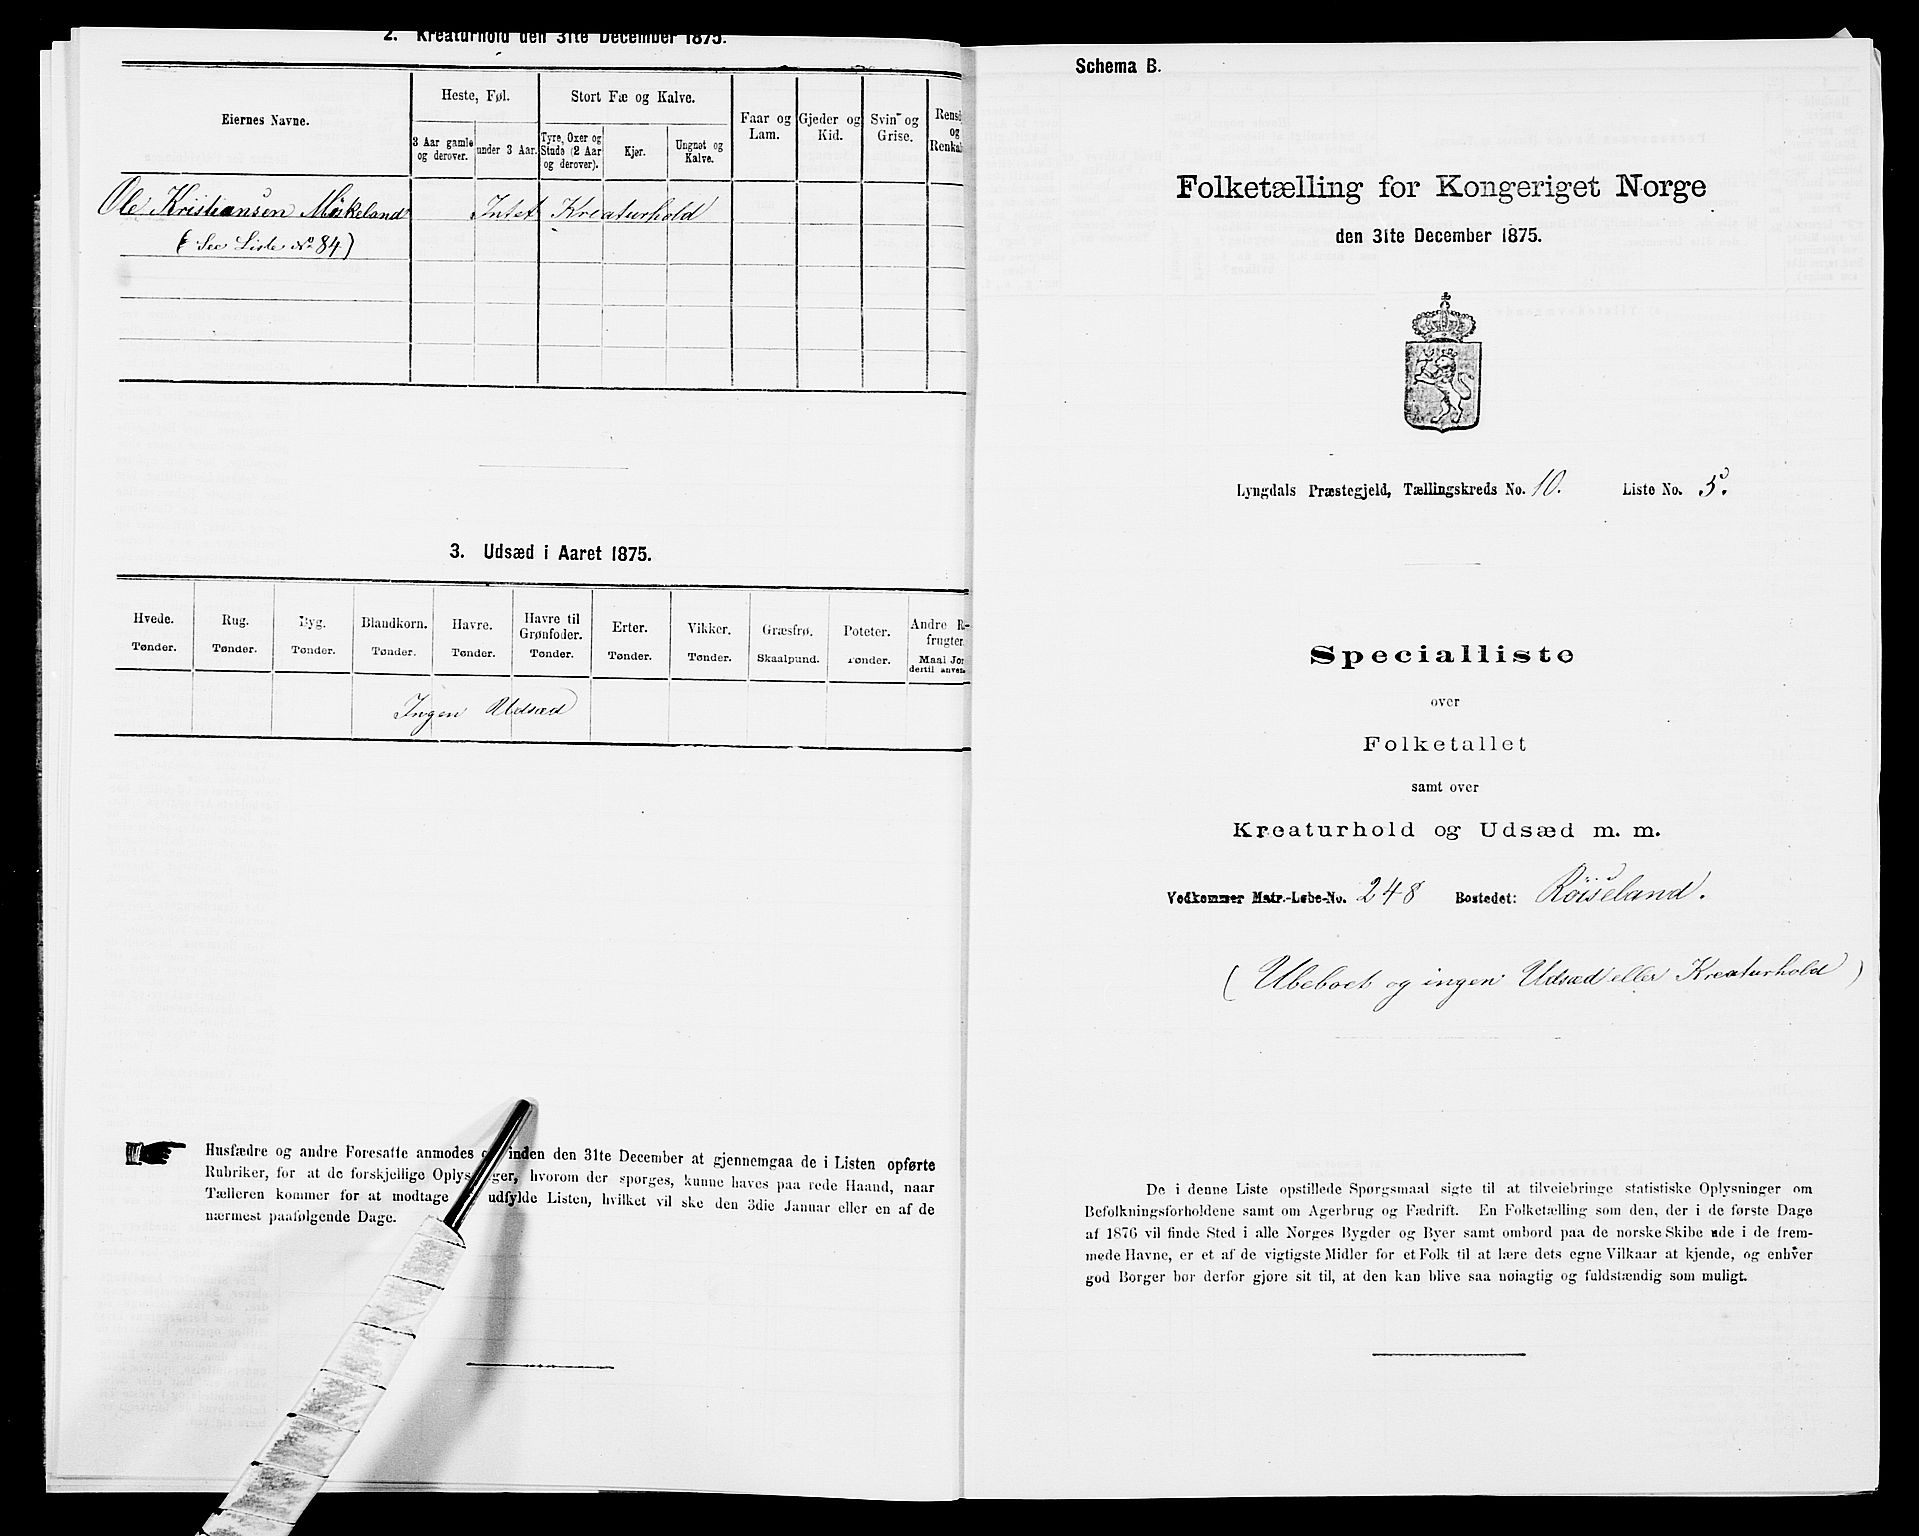 2. Kreaturhold den 31te December 1875.
Eiernes Navne.
Heste, Føl.
3 Aar gamle og derover.
under 3 Aar.
Stort Fæ og Kalve.
Tyre, Oxer og Studs (2 Aar og derover).
Kjør.
Ungnøt og Kalve.
Faar og Lam.
Gjeder og Kid.
Svin og Grise.
Ole Kristiansen Möskeland Intet Kreaturhold
(See Liste No. 84)
3. Udsæd i Aaret 1875.
Hvede. Tønder.
Rug. Tønder.
Byg. Tønder.
Blandkorn. Tønder.
Havre. Tønder.
Havre til Grønfoder. Tønder.
Erter. Tønder.
Vikker. Tønder.
Græsfrø. Skaalpund.
Poteter. Tønder.
Andre R-
frugter.
Maal Jor
dertil anven
Ingen Udsæd
Husfædre og andre Foresatte anmodes inden den 31te December at gjennemgaa de i Listen opførte
Rubriker, for at de forskjellige Oplys ger, hvorom der spørges, kunne haves paa rede Haand, naar
Tælleren kommer for at modtage udfylde Listen, hvilket vil ske den 3die Januar eller en af de
nærmest paafølgende Dage.
Schema B.
Folketælling for Kongeriget Norge
den 31te December 1875.
Lyngdals Præstegjeld, Tællingskreds No. 10. Liste No. 5.
Specialliste
over
Folketallet
samt over
Kreaturhold og Udsæd m. m.
Vedkommer Matr.-Løbe-No. 248 Bostedet: Röiseland.
(Ubeboet og ingen Udsæd eller Kreaturhold)
De i denne Liste opstillede Spørgsmaal sigte til at tilveiebringe statistiske Oplysninger om
Befolkningsforholdene samt om Agerbrug og Fædrift. En Folketælling som den, der i de første Dage
af 1876 vil finde Sted i alle Norges Bygder og Byer samt ombord paa de norske Skibe ude i de frem-
mede Havne, er et af de vigtigste Midler for et Folk til at lære dets egne Vilkaar at kjende, og enhver
god Borger bør derfor gjøre sit til, at den kan blive saa nøiagtig og fuldstændig som muligt.